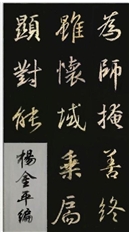 為師掩善終
雖懷域乘
顯對能
楊金平編